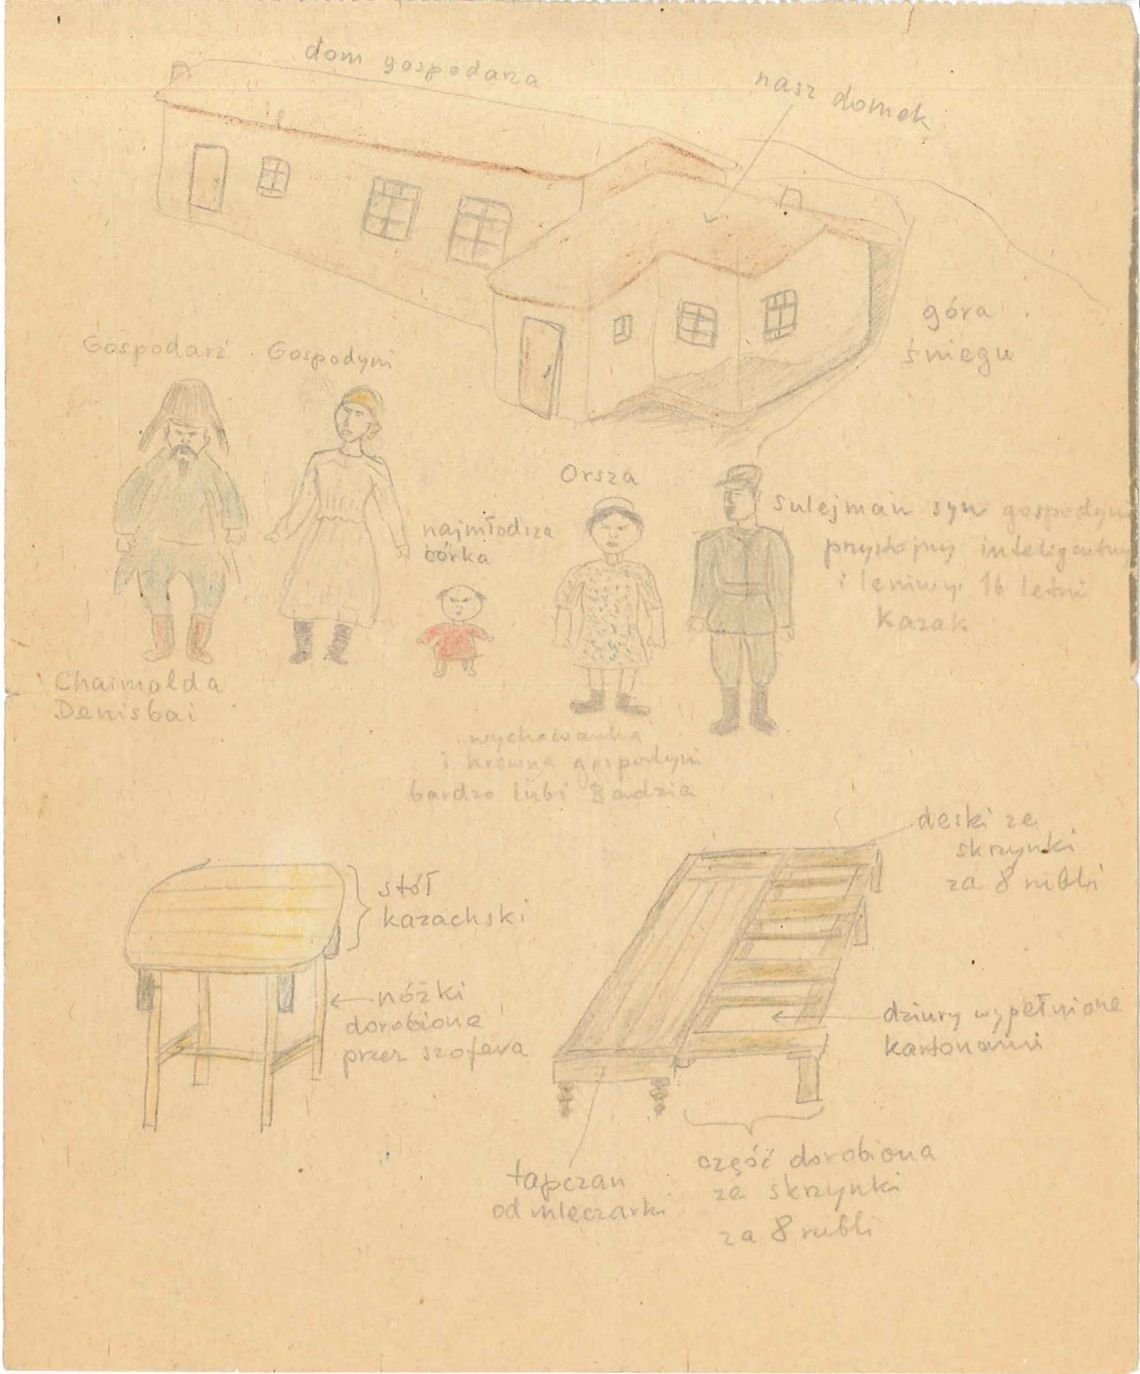 dom gospodarza
nasz domek
góra
śniegu
Gospodarz
Gospodyni
Orsza
najmłodsza
córka
Sulejman syn gospodyni
przystojny inteligentny
i leniwy 16 letni
Kazak
Chaimolda
Denisbai
wychowanka
i krewna gospodyni
bardzo lubi Badzia
deski ze
skrzynki
za 8 rubli
stół
kazachski
nóżki
dorobione
przez szofera
dziury wypełnione
kartonami
tapczan
od mleczarki
część dorobiona
ze skrzynki
za 8 rubli